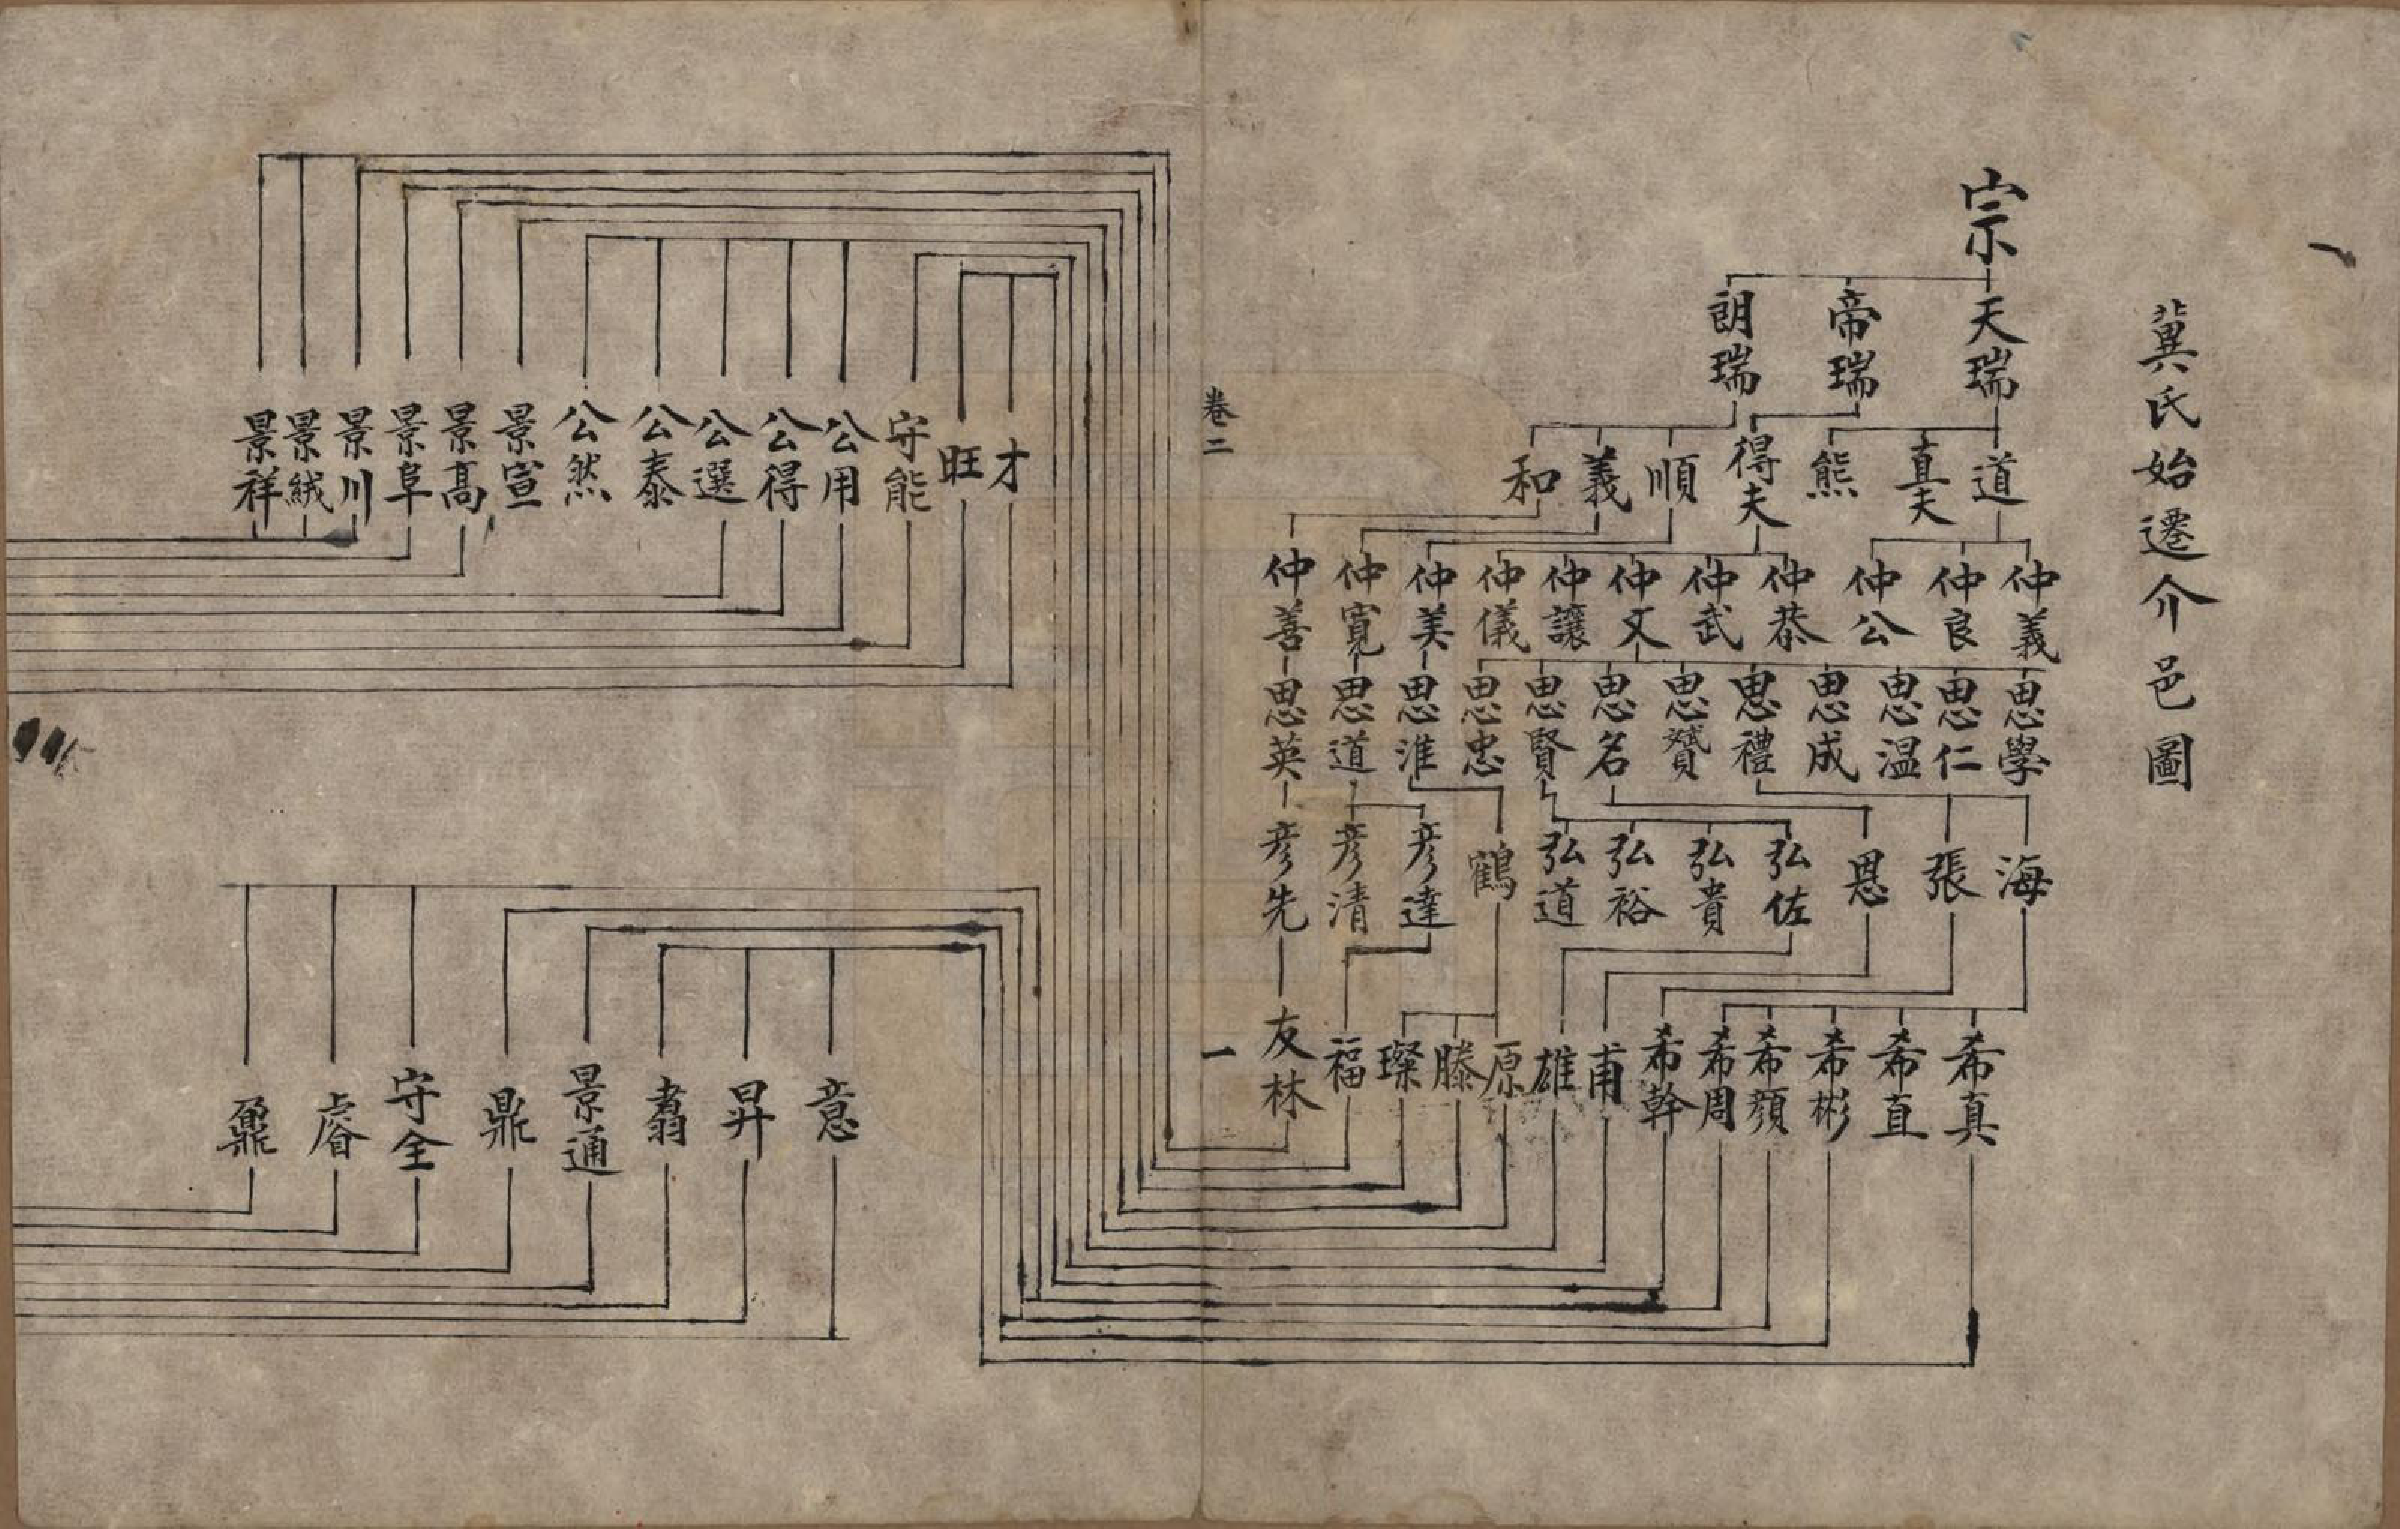 冀氏始遷介邑圖
宗
天瑞
帝瑞
朗瑞
道
直夫
熊
得夫
順
義
和
仲義
仲良
仲公
仲恭
仲武
仲文
仲讓
仲儀
仲美
仲寬
仲善
思學
思仁
思温
思成
思禮
思贇
思名
思賢
思忠
思淮
思道
思英
海
張
恩
弘佐
弘貴
弘裕
弘道
鶴
彦達
彦清
彦先
希真
希直
希彬
希顏
希周
希幹
甫
雄
原
滕
璨
福
友林
卷二
一
才
旺
守能
公用
公得
公選
公泰
公然
景宣
景高
景阜
景川
景絨
景祥
意
昇
翥
景通
鼎
守全
睿
鼐